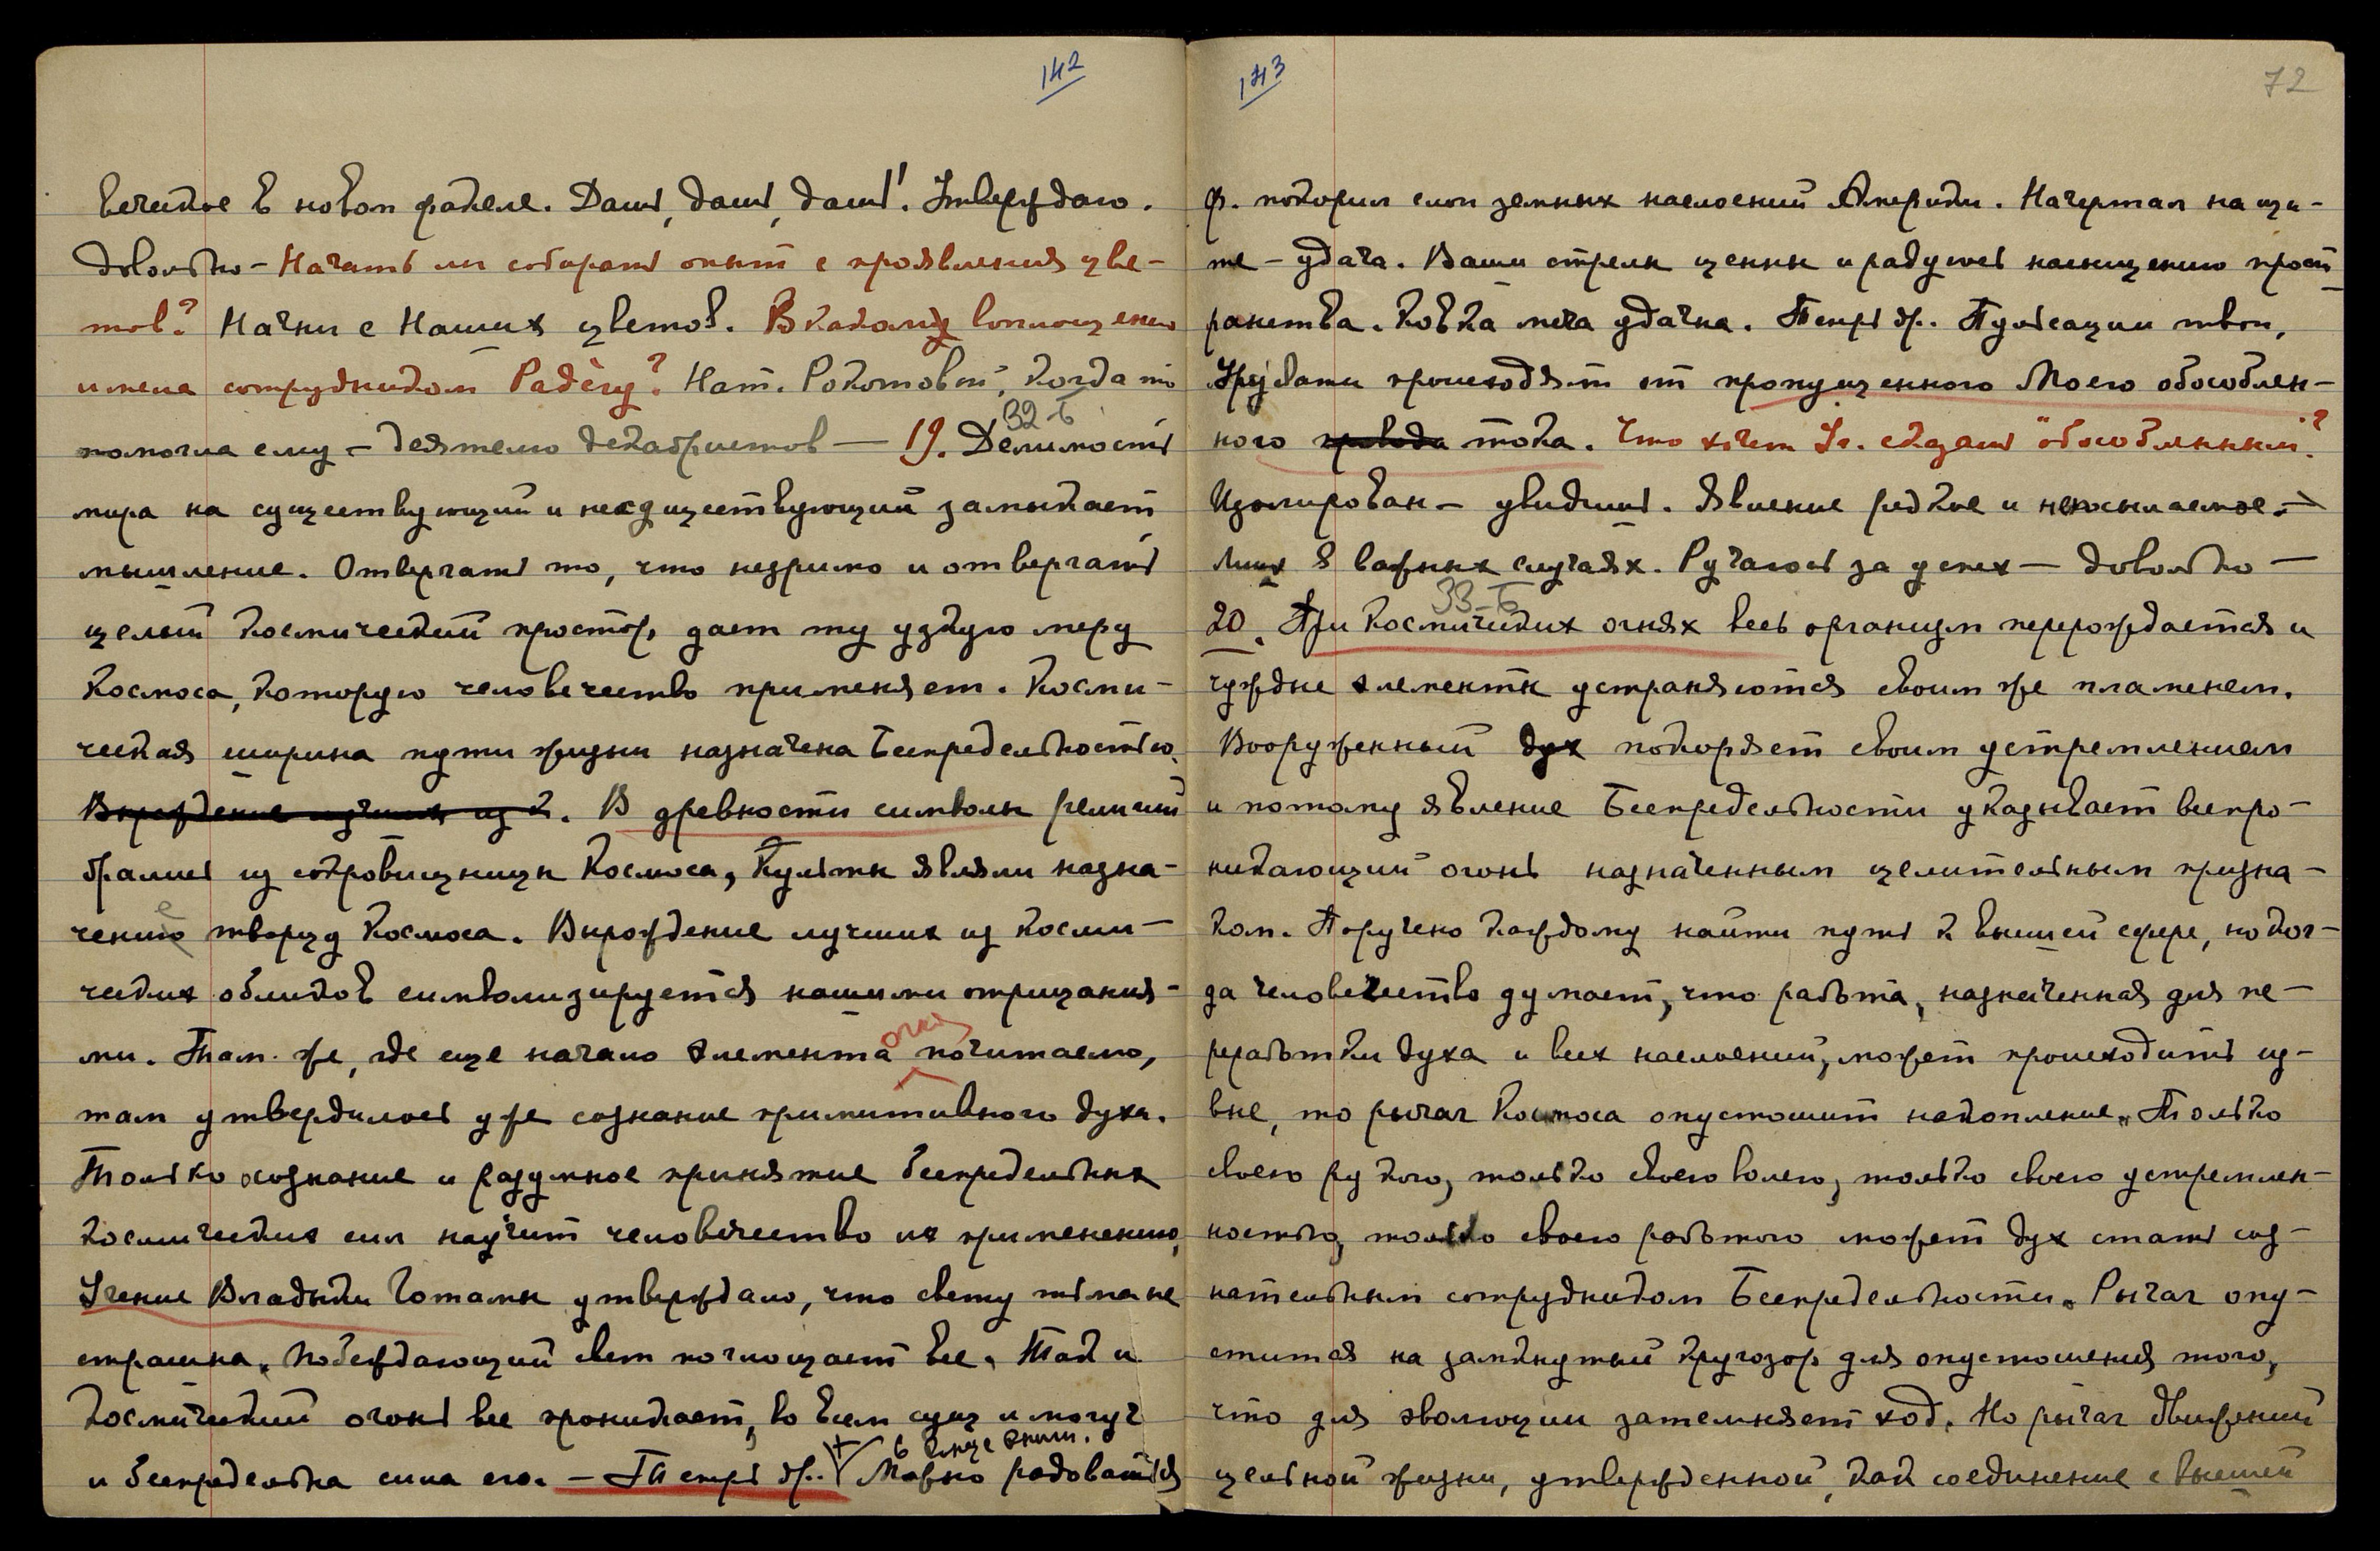 142
веческое в новом факеле. Дашь, дашь, дашь! Утверждаю.
довольно – Начать ли собирать опыт с проявления цве-
тов? Начни с Наших цветов. В каком воплощении
имена сотрудником Радегу? Нат. Рокотовой, когда-то
помогла ему – деятелю декабристов –
32-Б
19. Делимость
мира на существующий и несуществующий замыкает
мышление. Отвергать то, что незримо и отвергать
целый космический простор дает ту узкую меру
Космоса, которую человечество применяет. Косми-
ческая ширина пути жизни назначена Беспредельностью.
В древности символы религий
брались из сокровищницы Космоса, Культы являли назна-
чение творцу Космоса. Вырождение лучших из косми-
ческих обликов символизируется нашими отрицания-
ми. Там же, где еще начало элемента огня почитаемо,
там утвердилось уже сознание примитивного духа.
Только осознание и разумное принятие беспредельных
космических сил научит человечество их применению.
Учение Владыки Готамы утверждало, что свету тьма не
страшна. Побеждающий свет поглощает все. Так и
космический огонь все проникает, во всем сущ и могуч
и беспредельна сила его. – Теперь др. Можно радоваться
в конце книги.
143
72
ф. покорил слои земных наслоений Америки. Начертал на щи-
те – удача. Ваши стрелы ценны и радуюсь насыщению прост
ранства. Ковка меча удачна. Теперь др. Пульсации твои,
Урусвати происходят от пропущенного Моего обособлен-
ного провода тока. Что хочет Уч. сказать "обособленный"?
Изолирован – увидишь. Явление редкое и непосылаемое –
Лишь в важных случаях. Ручаюсь за успех – довольно –
33-Б
20. При Космических огнях весь организм перерождается и
чуждые элементы устраняются своим же пламенем.
Вооруженный дух покоряет своим устремлением
и потому явление Беспредельности указывает всепро-
никающий огонь назначенным целительным призна-
ком. Поручено каждому найти путь к высшей сфере, но ког-
да человечество думает, что работа, назначенная для пе-
реработки духа и всех наслоений, может происходить из-
вне, то рычаг Космоса опустошит накопление. Только
своею рукою, только своею волею, только своею устремлен-
ностью, только своею работою может дух стать соз-
нательным сотрудником Беспредельности. Рычаг опу-
стится на замкнутый кругозор для опустошения того,
что для эволюции затемняет ход. Но рычаг движений
цельной жизни, утвержденной, как соединение с высшей